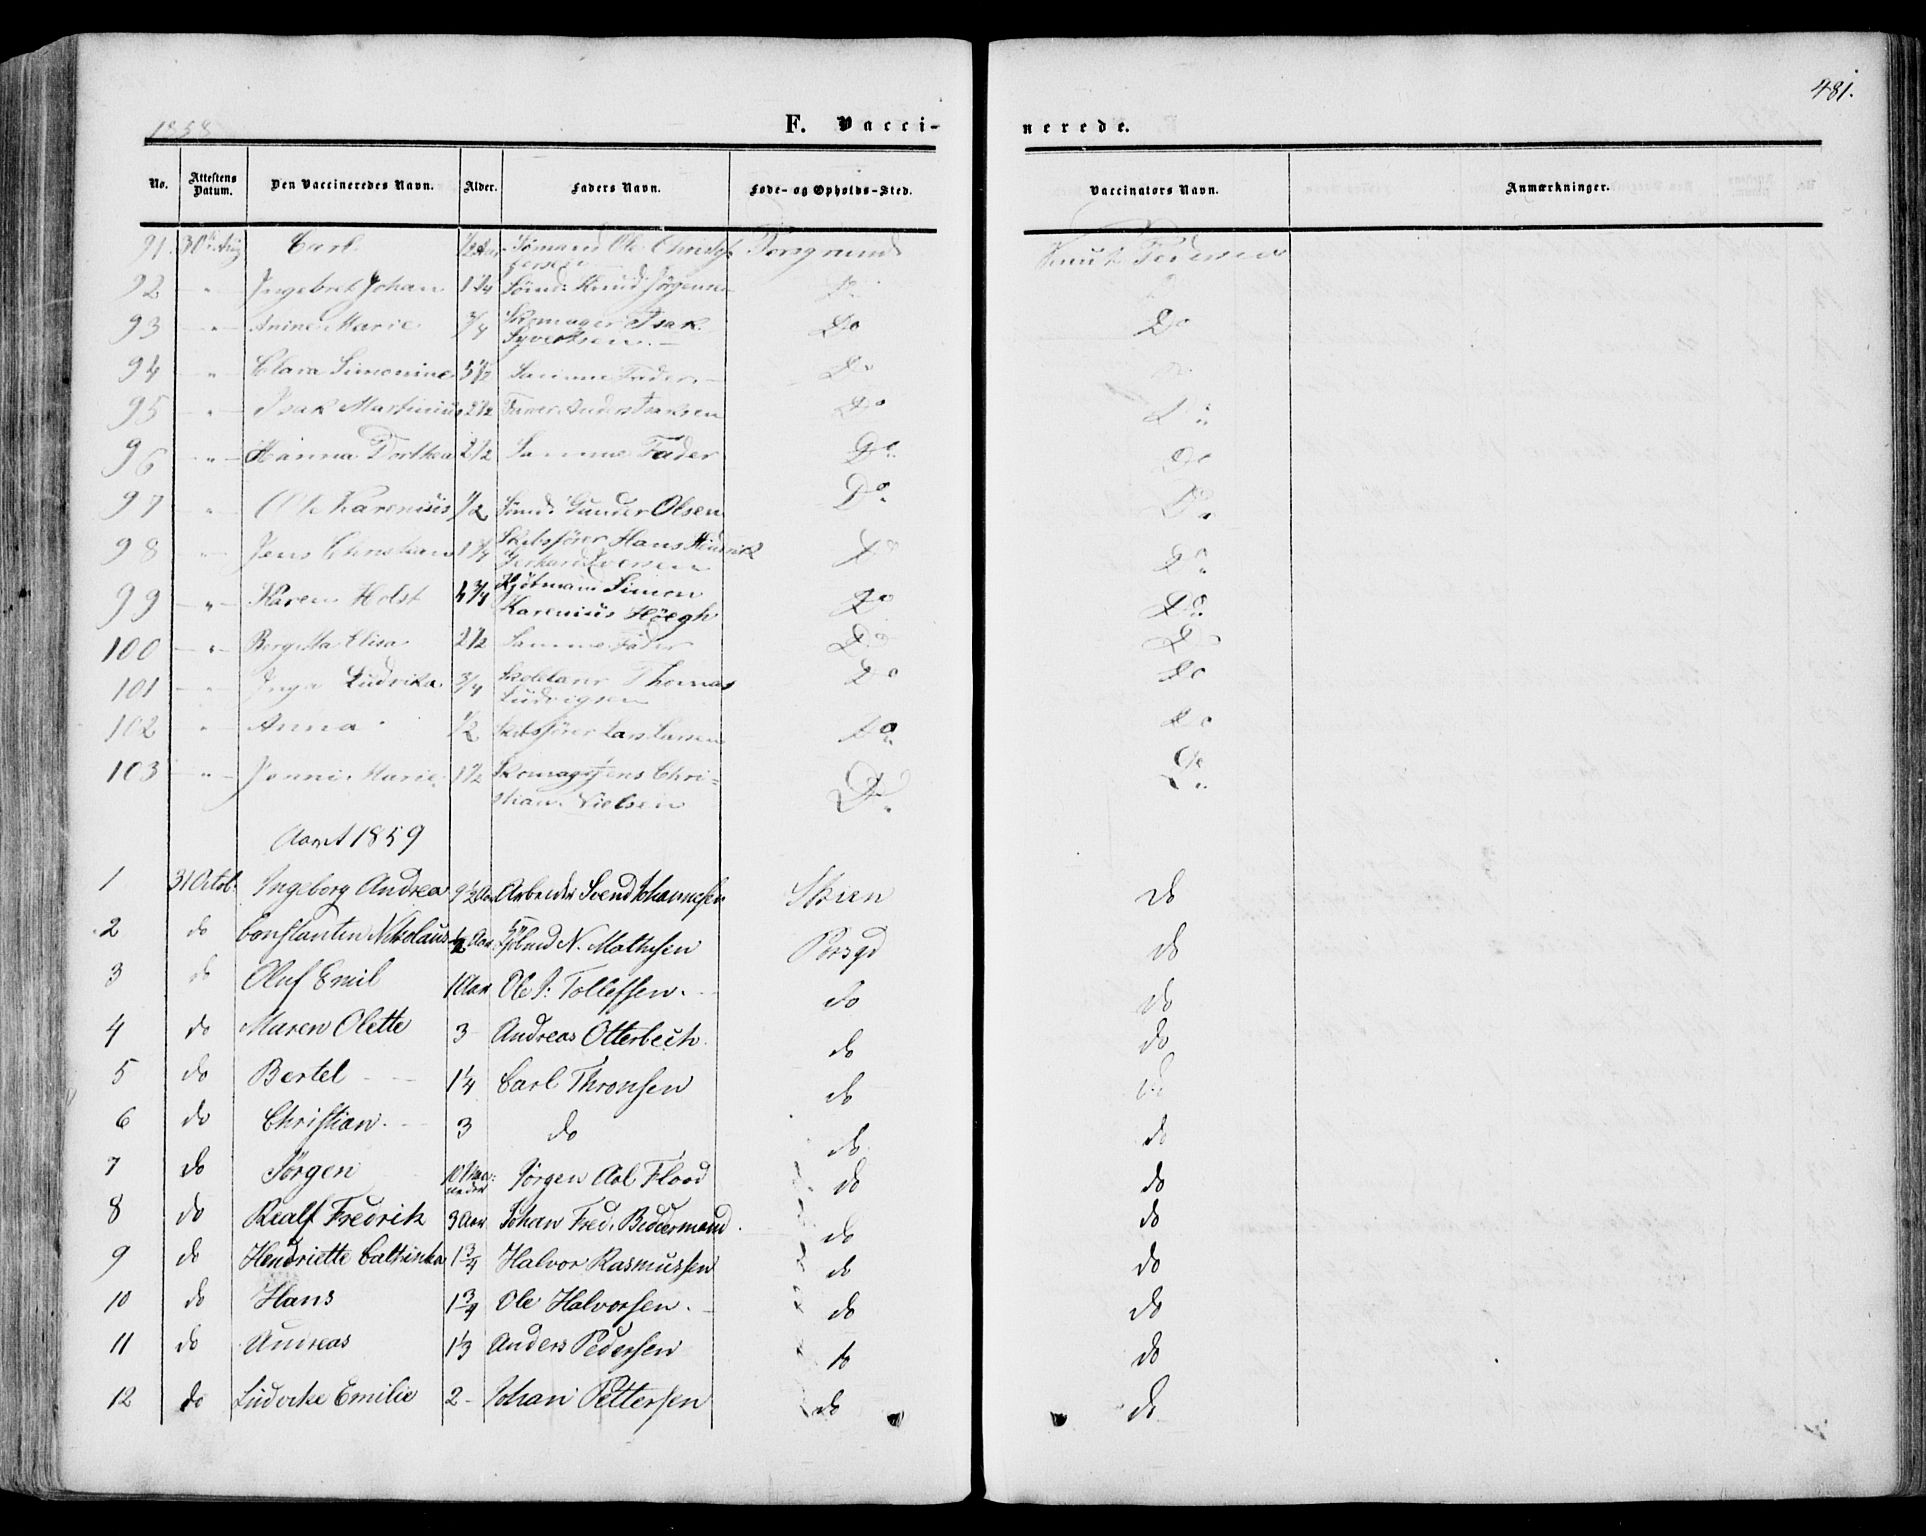 481.
1858
F. Vacci-
nerede.
No. Attestens Datum. Den Vaccineredes Navn. Alder. Faders Navn. Føde- og Opholds-Sted. Vaccinators Navn. Anmærkninger.
91. 30te Aug Carl 1/2 Aar Sømand Ole Christof- Porsgrund Knut Pedersen
fersen
92 " Ingebret Johan 1 1/4 Sømd: Knud Jørgensen Do
93 " Anine Marie 3/4 Skomager Isak Do Do
Syvertsen.
94 " Clara Simonine 5 1/2 Samme Fader Do
95 " Isak Martinius 2 1/2 Anders Isaksen Do Do
96 " Hanna Dorthea 2 1/2 Samme Fader Do Do
97 " Ole Karenius 1/2 Sømd: Gunder Olsen Do Do
98 " Jens Christian 1 1/4 Skibsfører Hans Hindrik Do Do
99 " Karen Holst 6 3/4 Kjøbmand Simon Do Do
Karenius Höegh
100 " Bergitta Elisa 2 1/2 Samme Fader Do Do
101 " Inga Ludvika 3/4 Thomas Do Do
Ludvigsen
102 " Anna 1/2 Skibsfører Lars Larsen Do Do
103 " Jenni Marie 1 1/2 Skomager Jens Chri- Do Do
stian Nielsen
Aaret 1859
1 31 Octob. Ingeborg Andrea 9 1/2 Aar Arbeider Svend Johannesen Skien do
2 do Constantin Nikolaus 1/2 Aar N. Mathisen Porsgd do
3 do Oluf Emil 1 Aar Ole J: Tollefsen. do do
4 do Maren Olette 3 Andreas Otterbech do do
5 do Bertel 1 1/4 Carl Thronsen do do
6 do Christian. 3 do do do
7 do Jørgen 10 Maaneder Jørgen Aal Flood do do
8 do Realf Fredrik 3 Aar Johan Fred. Biddermand do do
9 do Hendriette Cathinka 1 3/4 Halvor Rasmussen do do
10 do Hans 1 3/4 Ole Halvorsen. do do
11 do Andreas 1 1/3 Anders Pedersen do do
12 do Ludvike Emilie 2 Johan Pettersen do do